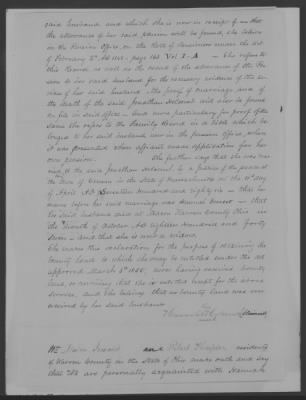 said husband and which she is now in receipt of — that
the allowance of her said pension will be found, she believes
in the Pension Office, on the Role of Pensioners under the Act
of February 2d AD 1848, page 163 Vol. 1 A — She refers to
this Record, as well as the record of the allowance of the Pen-
sion to her said husband for the necessary evidence of the ser-
vices of her said husband. The proof of marriage and of
the death of the said Jonathan will also be found
on file in said office — And more particularly for proof of the
same she refers to the Family Record in a Bible which be-
longed to her said husband now in the pension office, where
it was presented when affiant made application for her
own pension. She further says that she was mar-
ried to the said Jonathan by a Justice of the peace at
the Town of in the State of Massachusetts on the day
of April AD Seventeen hundred and eighty six — that her
name before her said marriage was Hannah — that
her said husband died at Warren County Ohio in
the month of October AD eighteen hundred and forty
Seven — and that she is now a widow.
She makes this declaration for the purpose of receiving the
bounty land to which she may be entitled under the act
approved March 3rd 1855, never having received bounty
land, or warrant, that she is entitled except for the above
service, and she believes that no bounty land was ever
received by his said husband
Hannah
We and residents
of Warren County in the State of Ohio make oath and say
that We are personally acquainted with Hannah